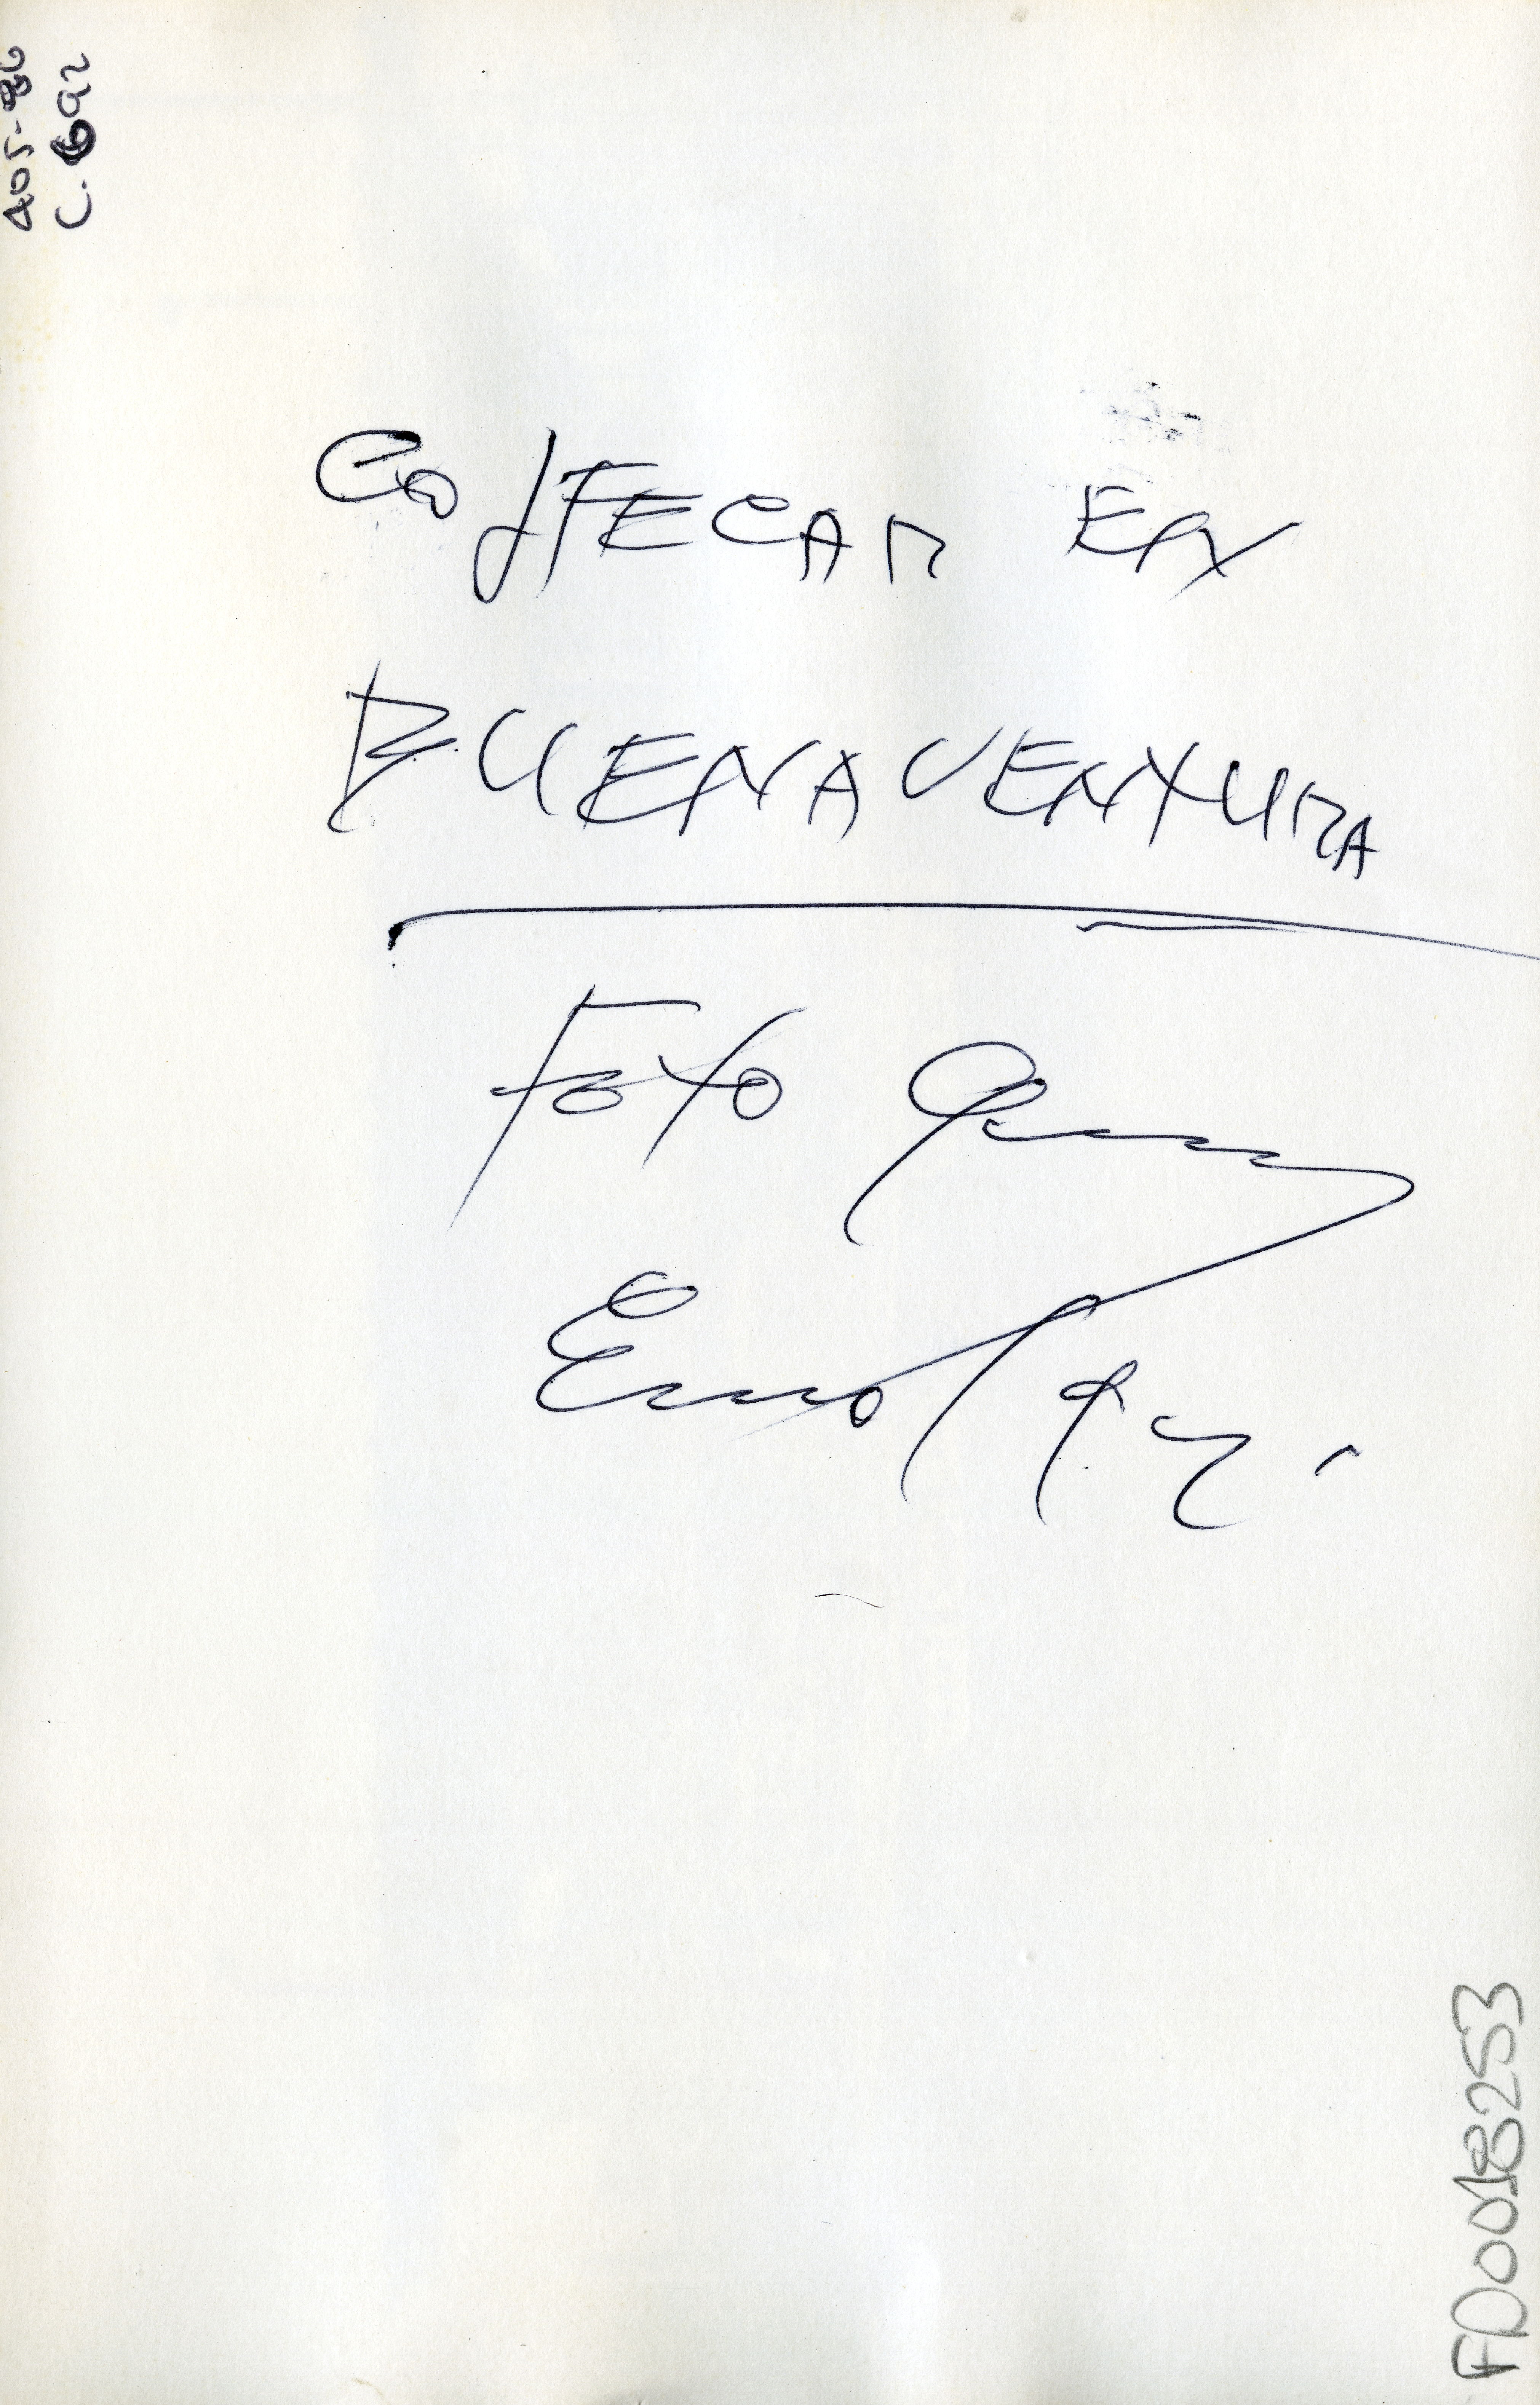 405-86
C.692
COLFECAR EN
BUENAVENTURA
Foto
FD0018253